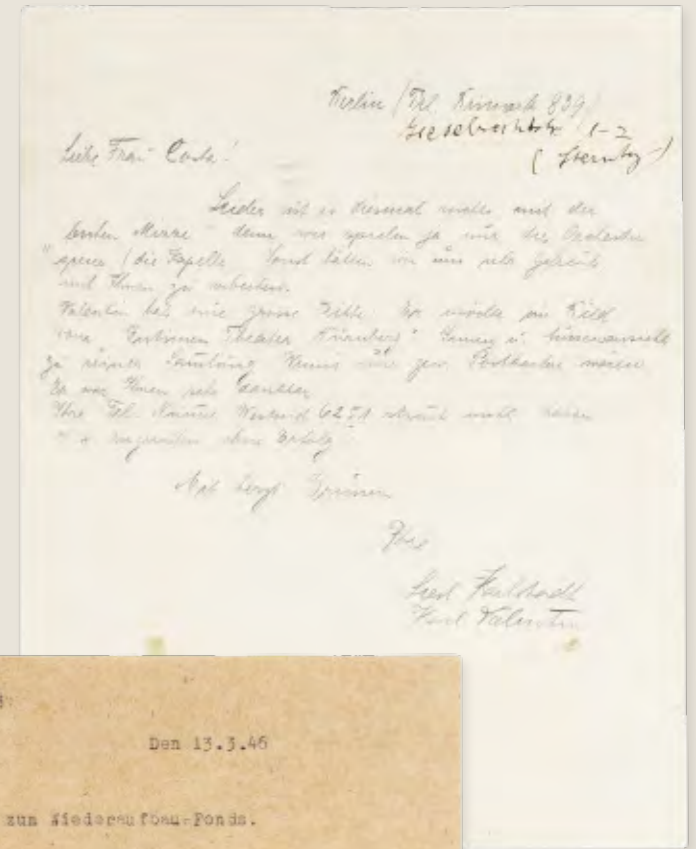 Berlin (Tel. Bismark 839)
Giesebrechtstr 1-2
(Sternbg)
Liebe Frau Costa!
Leider ist es diesmal nichts mit der
ersten Mizze" denn wir spielen ja nur die Orchester
(die Kapelle Sonst hätten wir uns sehr gefreut
mit Ihnen zu arbeiten.
Valentin hat eine grosse Bitte. Er möchte ein Bild
vom Intimen Theater Nürnberg"
zu seiner Sammlung
Er war Ihnen sehr dankbar
Ihre Tel. Westend 6251 nicht
angerufen ohne Erfolg
Mit herzl Grüssen
Ihre
Liesl Karlstadt
Karl Valentin
Den 13.3.46
zum Wiederaufbau-Fonds.